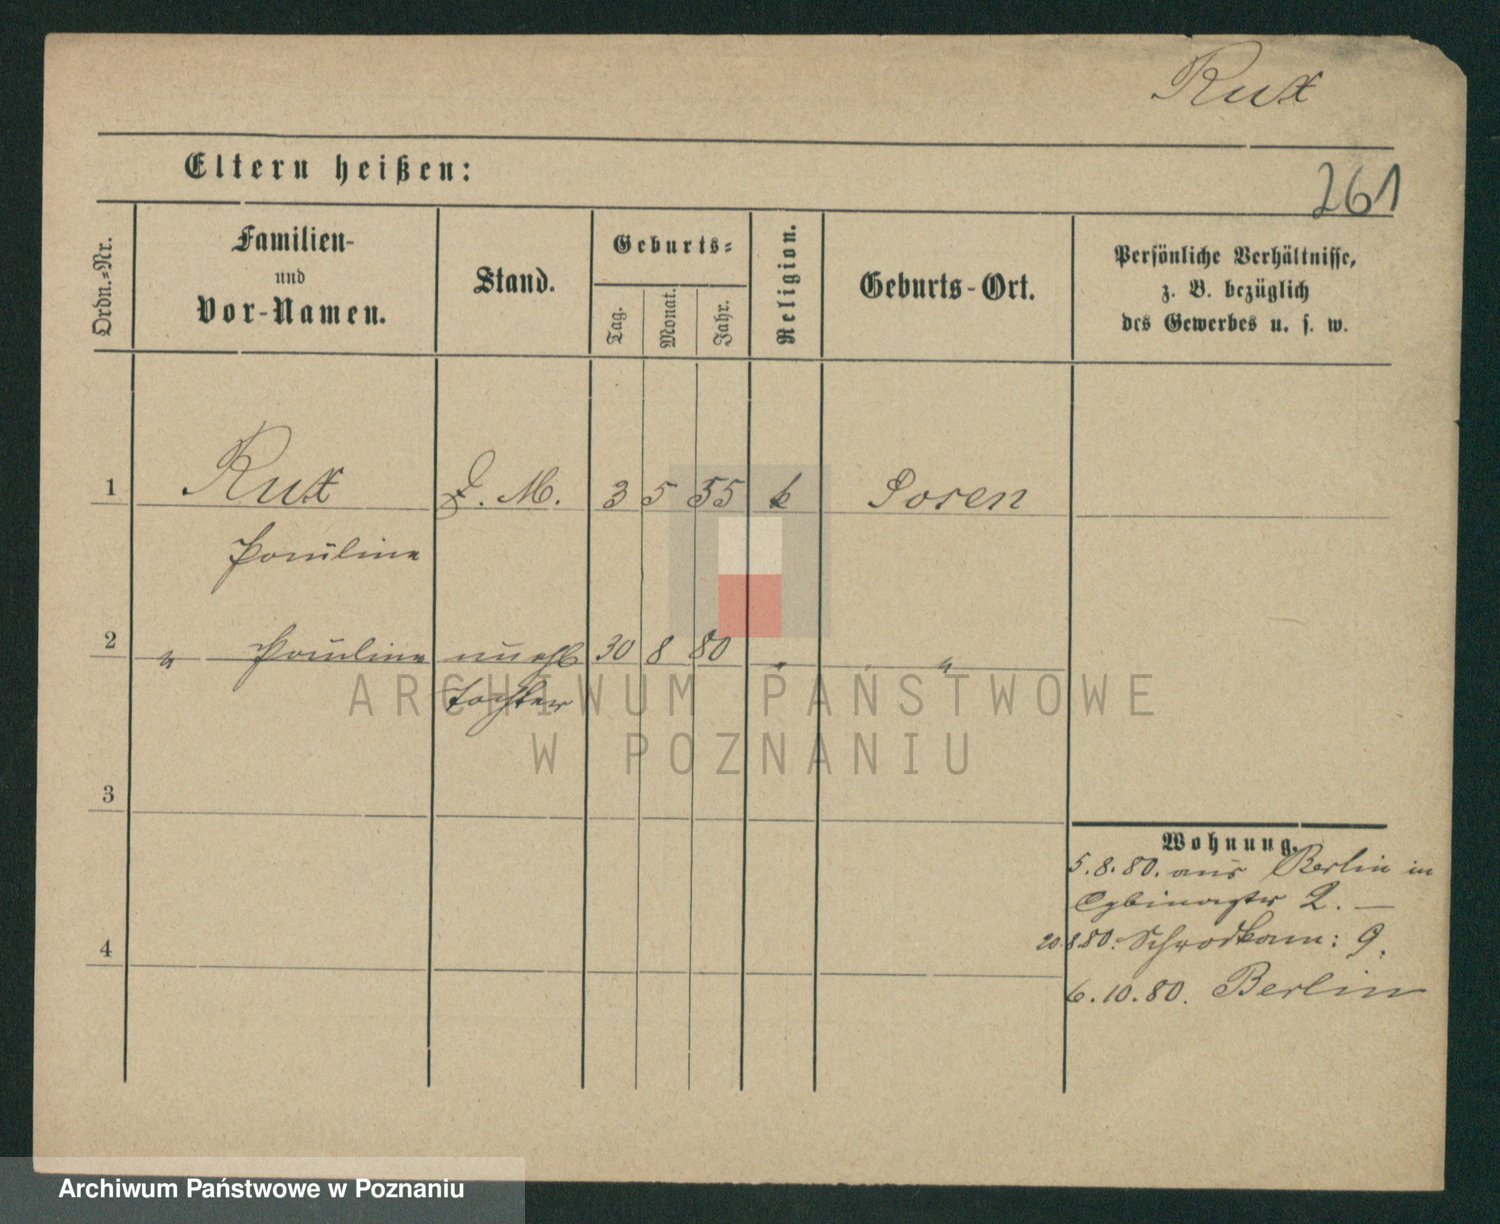 Rux
Eltern heißen:
261
Ordn.-Nr.
Familien-
und
Vor-Namen.
Stand.
Geburts-
Tag.
Monat.
Jahr.
Religion.
Geburts-Ort.
Persönliche Verhältnisse,
z. B. bezüglich
des Gewerbes u. s. w.
1 Rux D. M. 3 5 55 k Posen
Pauline
2 " Pauline unehl 30 8 80 " "
tochter
ARCHIWUM PAŃSTWOWE
W POZNANIU
3
Wohnung.
5.8.80. aus Berlin in
2. —
20.8.80. Schrodkam: 9.
4
6.10.80. Berlin
Archiwum Państwowe w Poznaniu